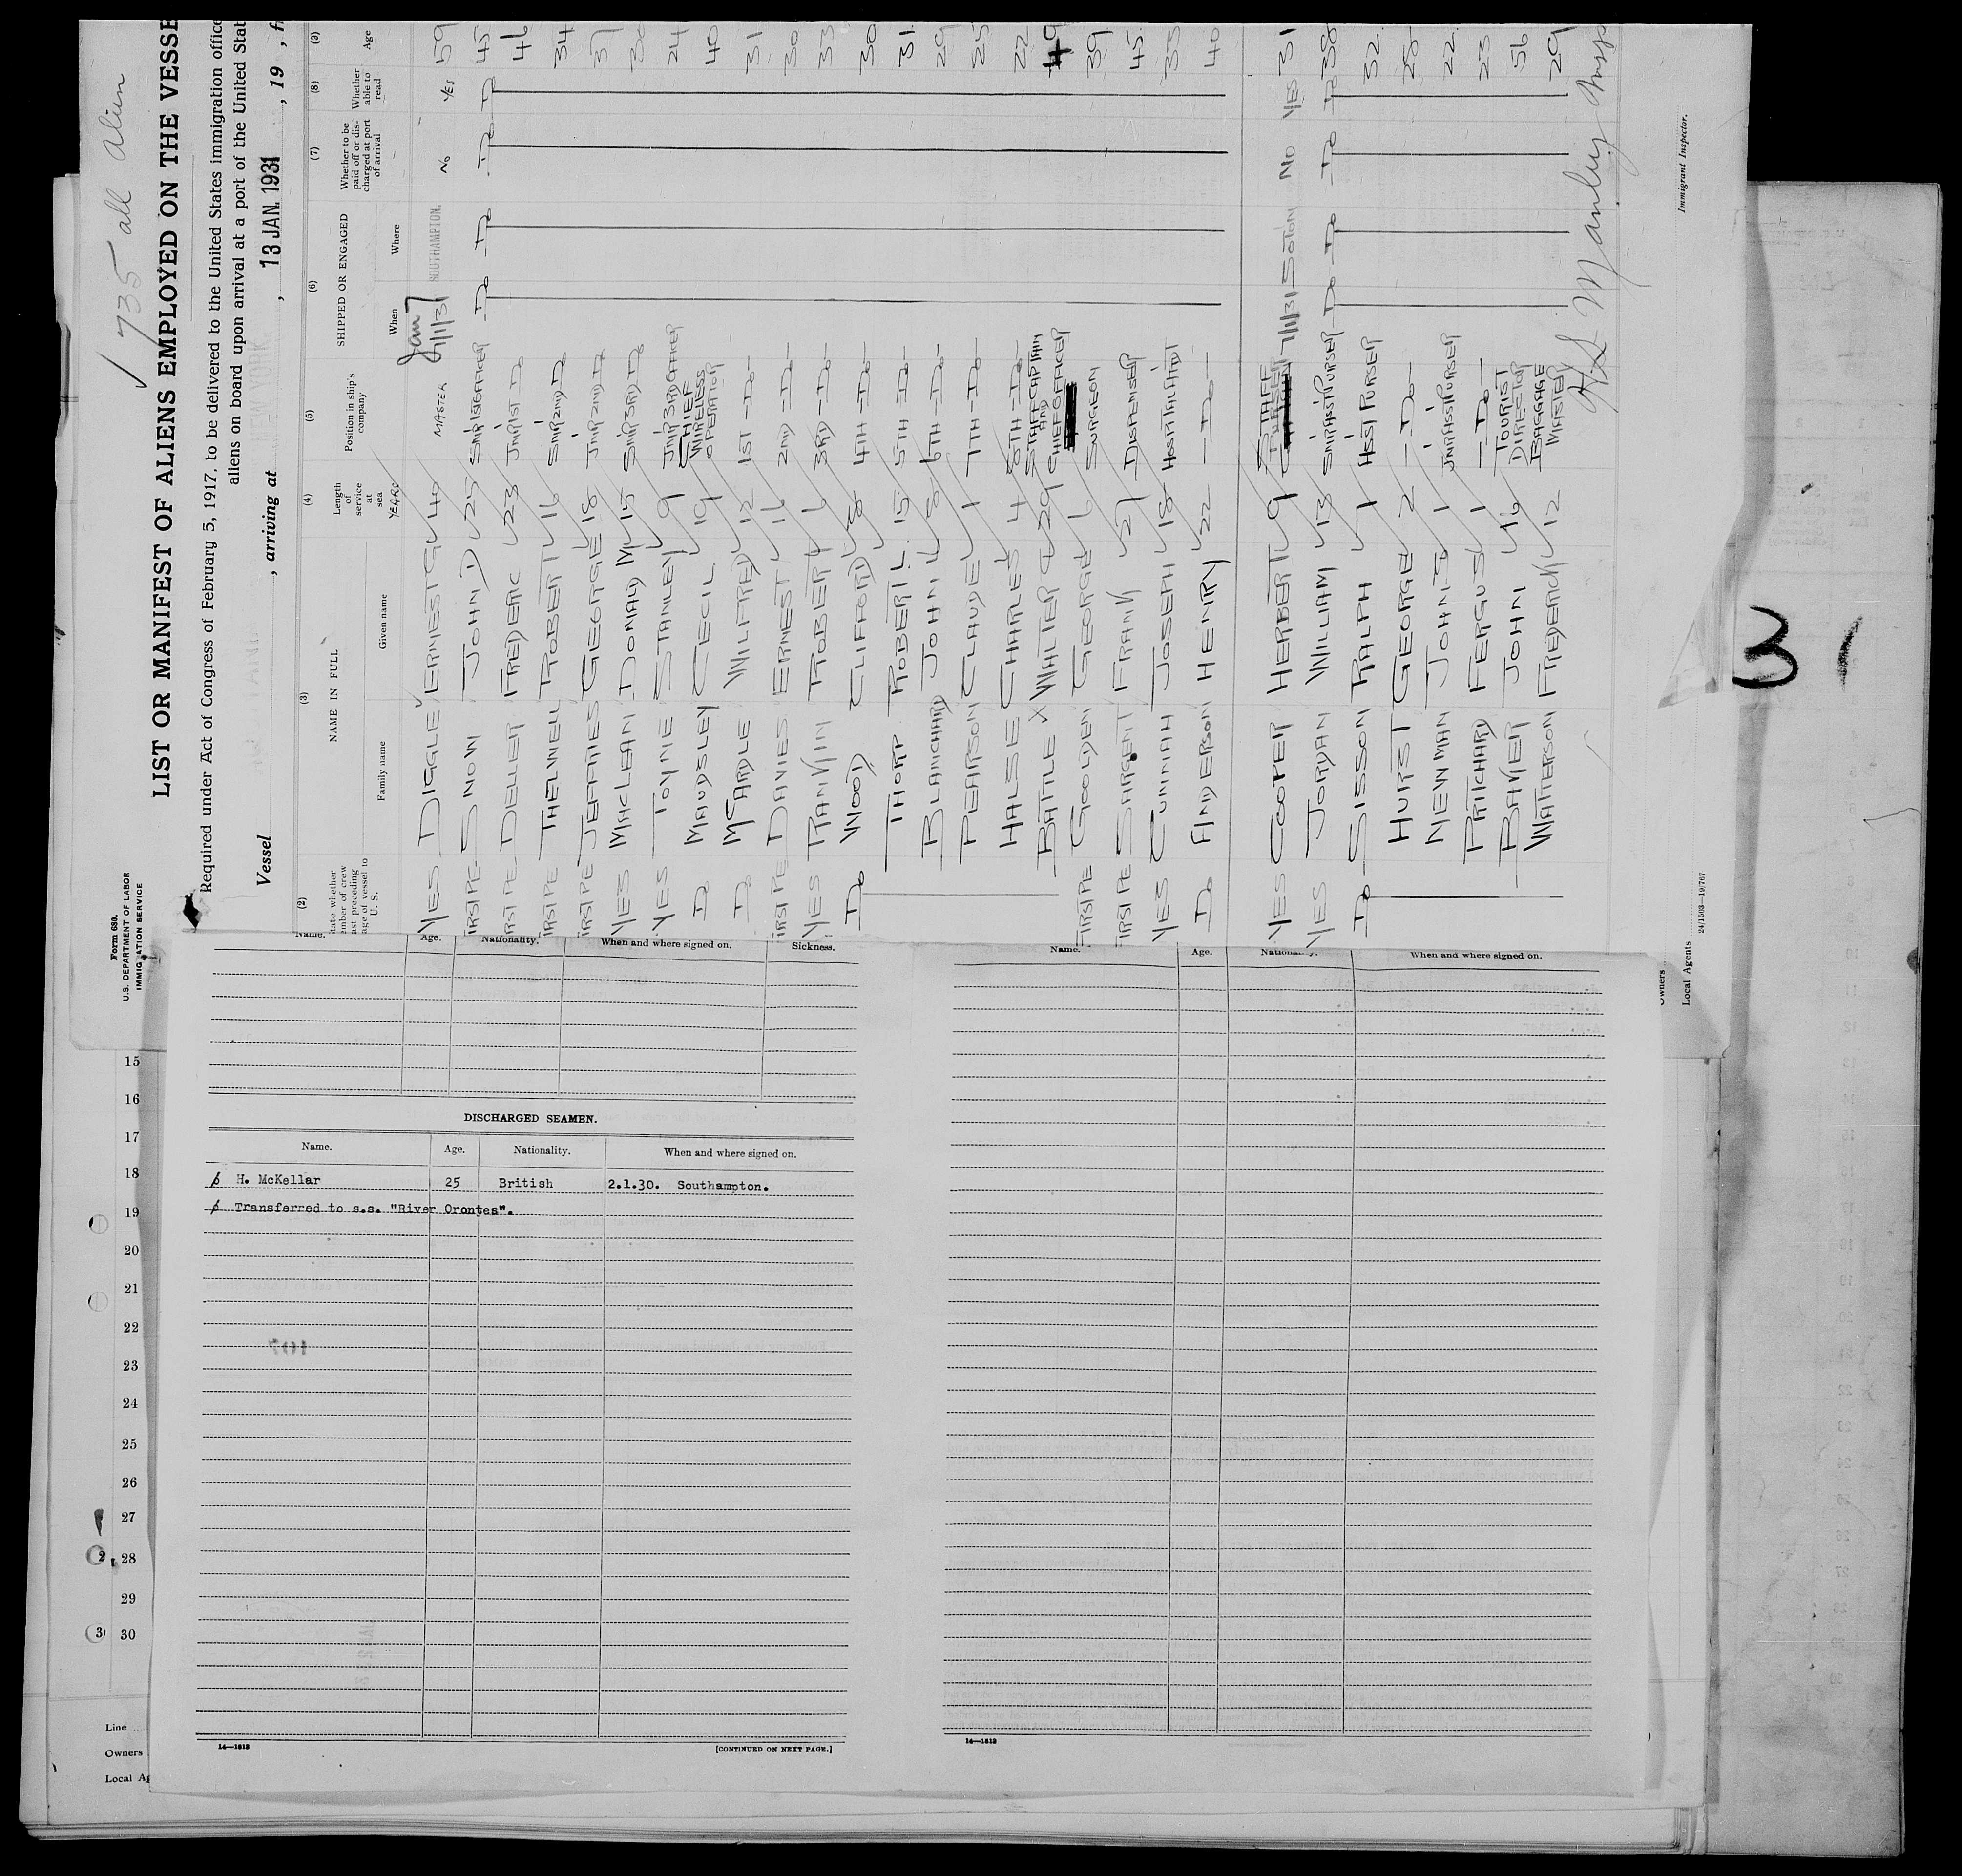 1735 all Alien
Form 680.
U.S. DEPARTMENT OF LABOR
IMMIGRATION SERVICE
LIST OR MANIFEST OF ALIENS EMPLOYED ON THE VESSE
Required under Act of Congress of February 5, 1917, to be delivered to the United States immigration office
aliens on board upon arrival at a port of the United Stat
Vessel , arriving at , 13 JAN. 1931 , 19 , f
(2) (3) (4) (5) (6) (7) (8) (9)
NAME IN FULL
SHIPPED OR ENGAGED
Family name Given name Length of service at sea Position in ship's company When Where Whether to be paid off or discharged at port of arrival Whether able to read Age
YEARS
YES DIGGLE ERNEST G 40 MASTER Jan 7 7/1/31 SOUTHAMPTON. NO YES 59
SNOW JOHN D 25 SNR 1ST OFFICER Do Do Do Do 45
DELLER FREDERIC 23 JNR 1ST Do 46
THELWELL ROBERT 16 SNR 2ND Do 34
JEFFRIES GEORGE 18 JNR 2ND Do 37
YES MACLEAN DONALD M 15 SNR 3RD Do
YES TOYNE STANLEY 9 JNR 3RD OFFICER 24
Do MAUDSLEY CECIL 19 CHIEF WIRELESS OPERATOR 40
Do McARDLE WILFRED 12 1ST Do 31
DAVIES ERNEST 16 2ND Do 30
YES RANKIN ROBERT 6 3RD Do 33
Do WOOD CLIFFORD 8 4TH Do 30
THORP ROBERT L. 15 5TH Do 31
BLANCHARD JOHN 8 6TH Do 29
PEARSON CLAUDE 1 7TH Do 25
HALSE CHARLES 4 8TH Do 22
BATTLE X WALTER 29 STAFF CAPTAIN AND CHIEF OFFICER 49
GOOLDEN GEORGE 6 SURGEON 39
SARGENT FRANK 27 DISPENSER 45
YES CUNNAH JOSEPH 18 HOSPITAL ATTDT 33
Do ANDERSON HENRY 22 Do 40
YES COOPER HERBERT 9 STAFF 7/1/31 SOTON NO YES 31
YES JORDAN WILLIAM 13 SNR ASST PURSER Do Do Do Do 38
Do SISSON RALPH 7 ASST PURSER 32
HURST GEORGE 2 Do
NEWMAN JOHN 1 JNR ASST PURSER 22
PRITCHARD FERGUS 1 Do 23
JOHN 16 TOURIST DIRECTOR 56
WATTERSON FREDERICK 12 BAGGAGE MASTER 29
Manley Insp
Immigrant Inspector.
Owners
Local Agents
24/1503—19/767
31
Name. Age. Nationality. When and where signed on. Sickness.
DISCHARGED SEAMEN.
Name. Age. Nationality. When and where signed on.
H. McKellar 25 British 2.1.30. Southampton.
Transferred to s.s. "River Orontes".
14—1612
[CONTINUED ON NEXT PAGE.]
Name. Age. Nationality. When and where signed on.
14—1612
15
16
17
18
19
20
21
22
23
24
25
26
27
28
29
30
Line
Owners
Local Ag